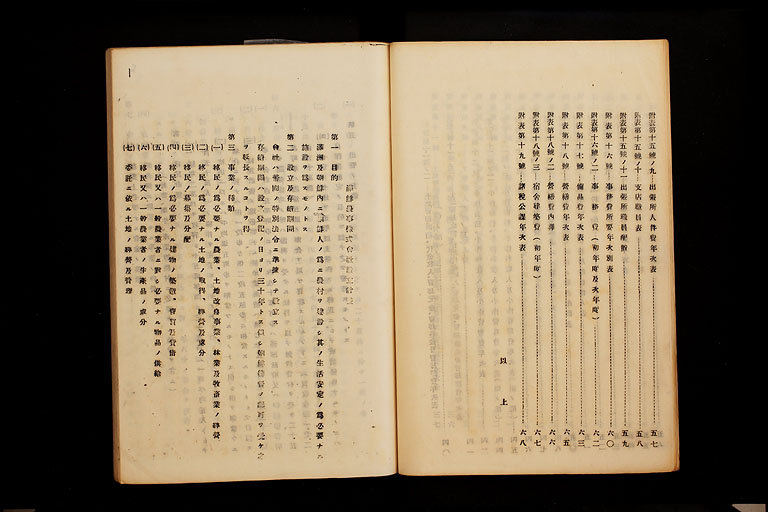 附表第十五號ノ九 出張所人件費年次表 五七
附表第十五號ノ十 支店職員表 五八
附表第十五號ノ十一 出張所職員配置 五九
附表第十六號 事務費所要年次別表 六〇
附表第十六號ノ二 事務費(初年度及次年度) 六二
附表第十七號 備品費年次表 六三
附表第十八號 營繕費年次表 六五
附表第十八號ノ二 營繕費內譯 六六
附表第十八號ノ三 宿舍建築費(初年度) 六七
附表第十九號 諸稅公課年次表 六八
以上
第一 目的
滿洲及朝鮮內ニ朝鮮人ノ爲ニ農村ヲ建設シ其ノ生活安定ノ爲必要ナル
施設ヲ爲スモノトス
第二 設立及存續期間
會社ハ番問ノ特別法令ニ準據シテ設立ス
存續期間ハ設立登記ノ日ヨリ三十年トス但シ朝鮮總督ノ認可ヲ受ケ之
ヲ延長スルコトヲ得
第三 事業ノ種類
(一) 移民ノ爲必要ナル農業、土地改良事業、林業及牧畜業ノ經營
(二) 移民ノ爲必要ナル土地ノ取得、經營及處分
(三) 移民ノ募集及分配
(四) 移民ノ爲必要ナル建物ノ築造、賣買及貸借
(五) 移民又ハ一般農業者ニ對シ必要ナル物品ノ供給
(六) 移民又ハ一般農業者ノ生產品ノ處分
(七) 委託ニ依ル土地ノ經營及管理